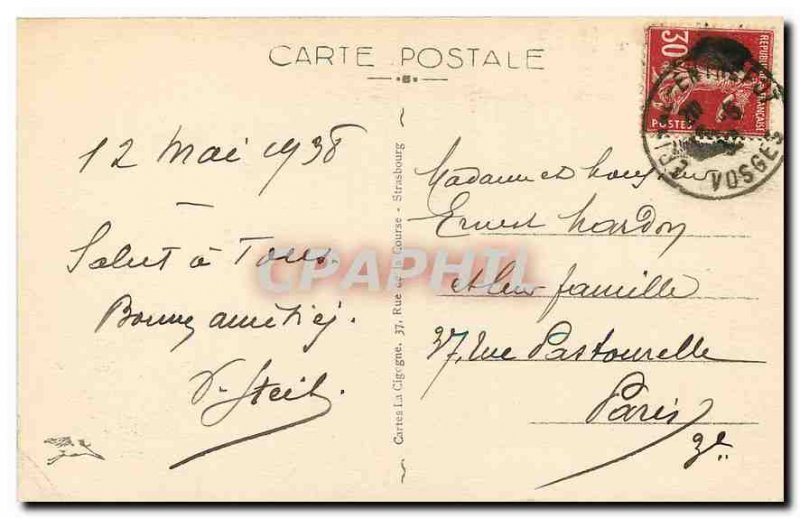 CARTE POSTALE
30
RÉPUBLIQUE FRANÇAISE
POSTES
VOSGES
12 Mai 1938
Salut à Tous.
Bonnes amitiés.
Cartes La Cigogne, 37, Rue de la Course - Strasbourg
Madame et Monsieur
Ernest Nardon
et leur famille
37, rue Pastourelle
Paris
3e
CPAPHIL